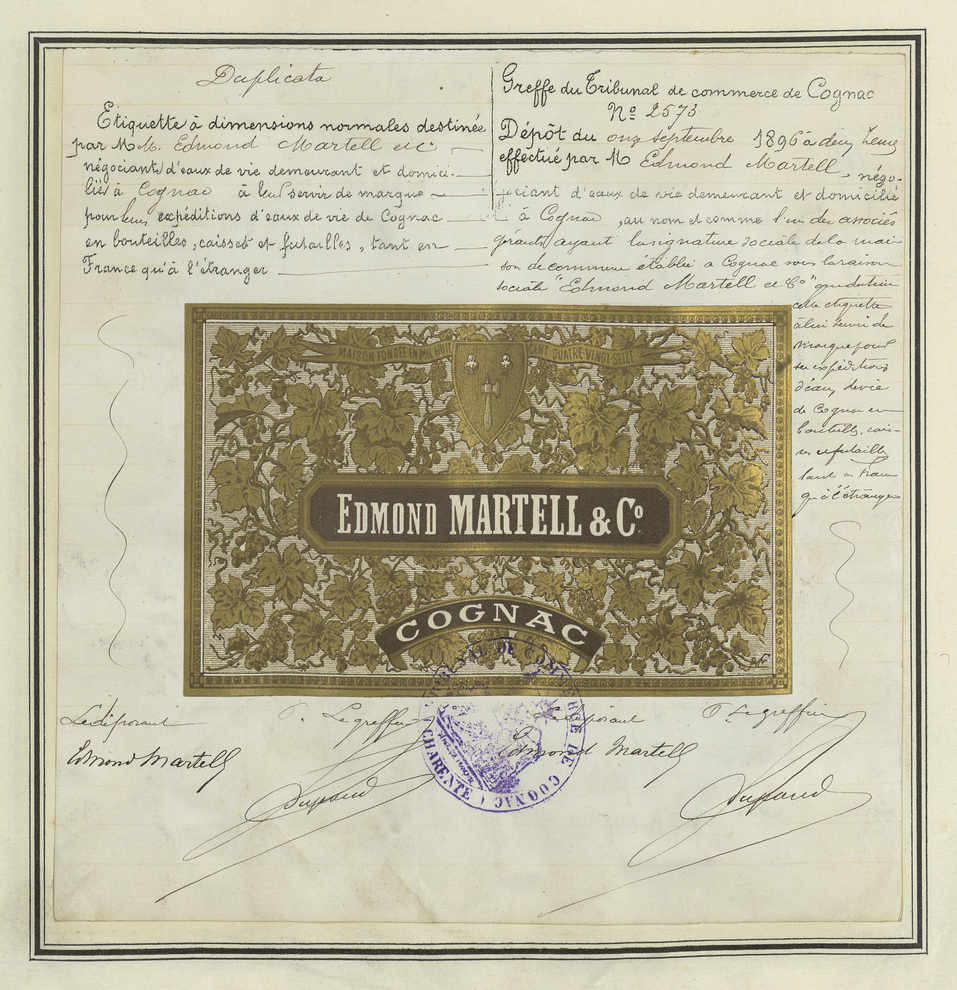 Duplicata
Etiquette à dimensions normales destinée
par MM. Edmond Martell et Cie
négociants d'eaux de vie demeurant et domici-
liés à Cognac à leur servir de marque
pour leurs expéditions d'eaux de vie de Cognac
en bouteilles, caisses et futailles, tant en
France qu'à l'étranger
Greffe du Tribunal de commerce de Cognac
No 2573
Dépôt du onze septembre 1896 à deux heures
effectué par M Edmond Martell, négo-
ciant d'eaux de vie demeurant et domicilié
à Cognac, au nom et comme l'un des associés
gérants, ayant la signature sociale de la mai-
son de commerce établie à Cognac sous la raison
sociale "Edmond Martell et Co" que destine
cette étiquette
à lui servir de
marque pour
ses expéditions
d'eaux de vie
de Cognac en
bouteilles, cais-
ses et futailles
tant en France
qu'à l'étranger
MAISON FONDÉE EN MIL HUIT CENT QUATRE-VINGT-SEIZE
EDMOND MARTELL & Co
COGNAC
Le déposant
P. Le greffier
Le déposant
P. Le greffier
Edmond Martell
Edmond Martell
TRIBUNAL DE COMMERCE DE COGNAC (CHARENTE)